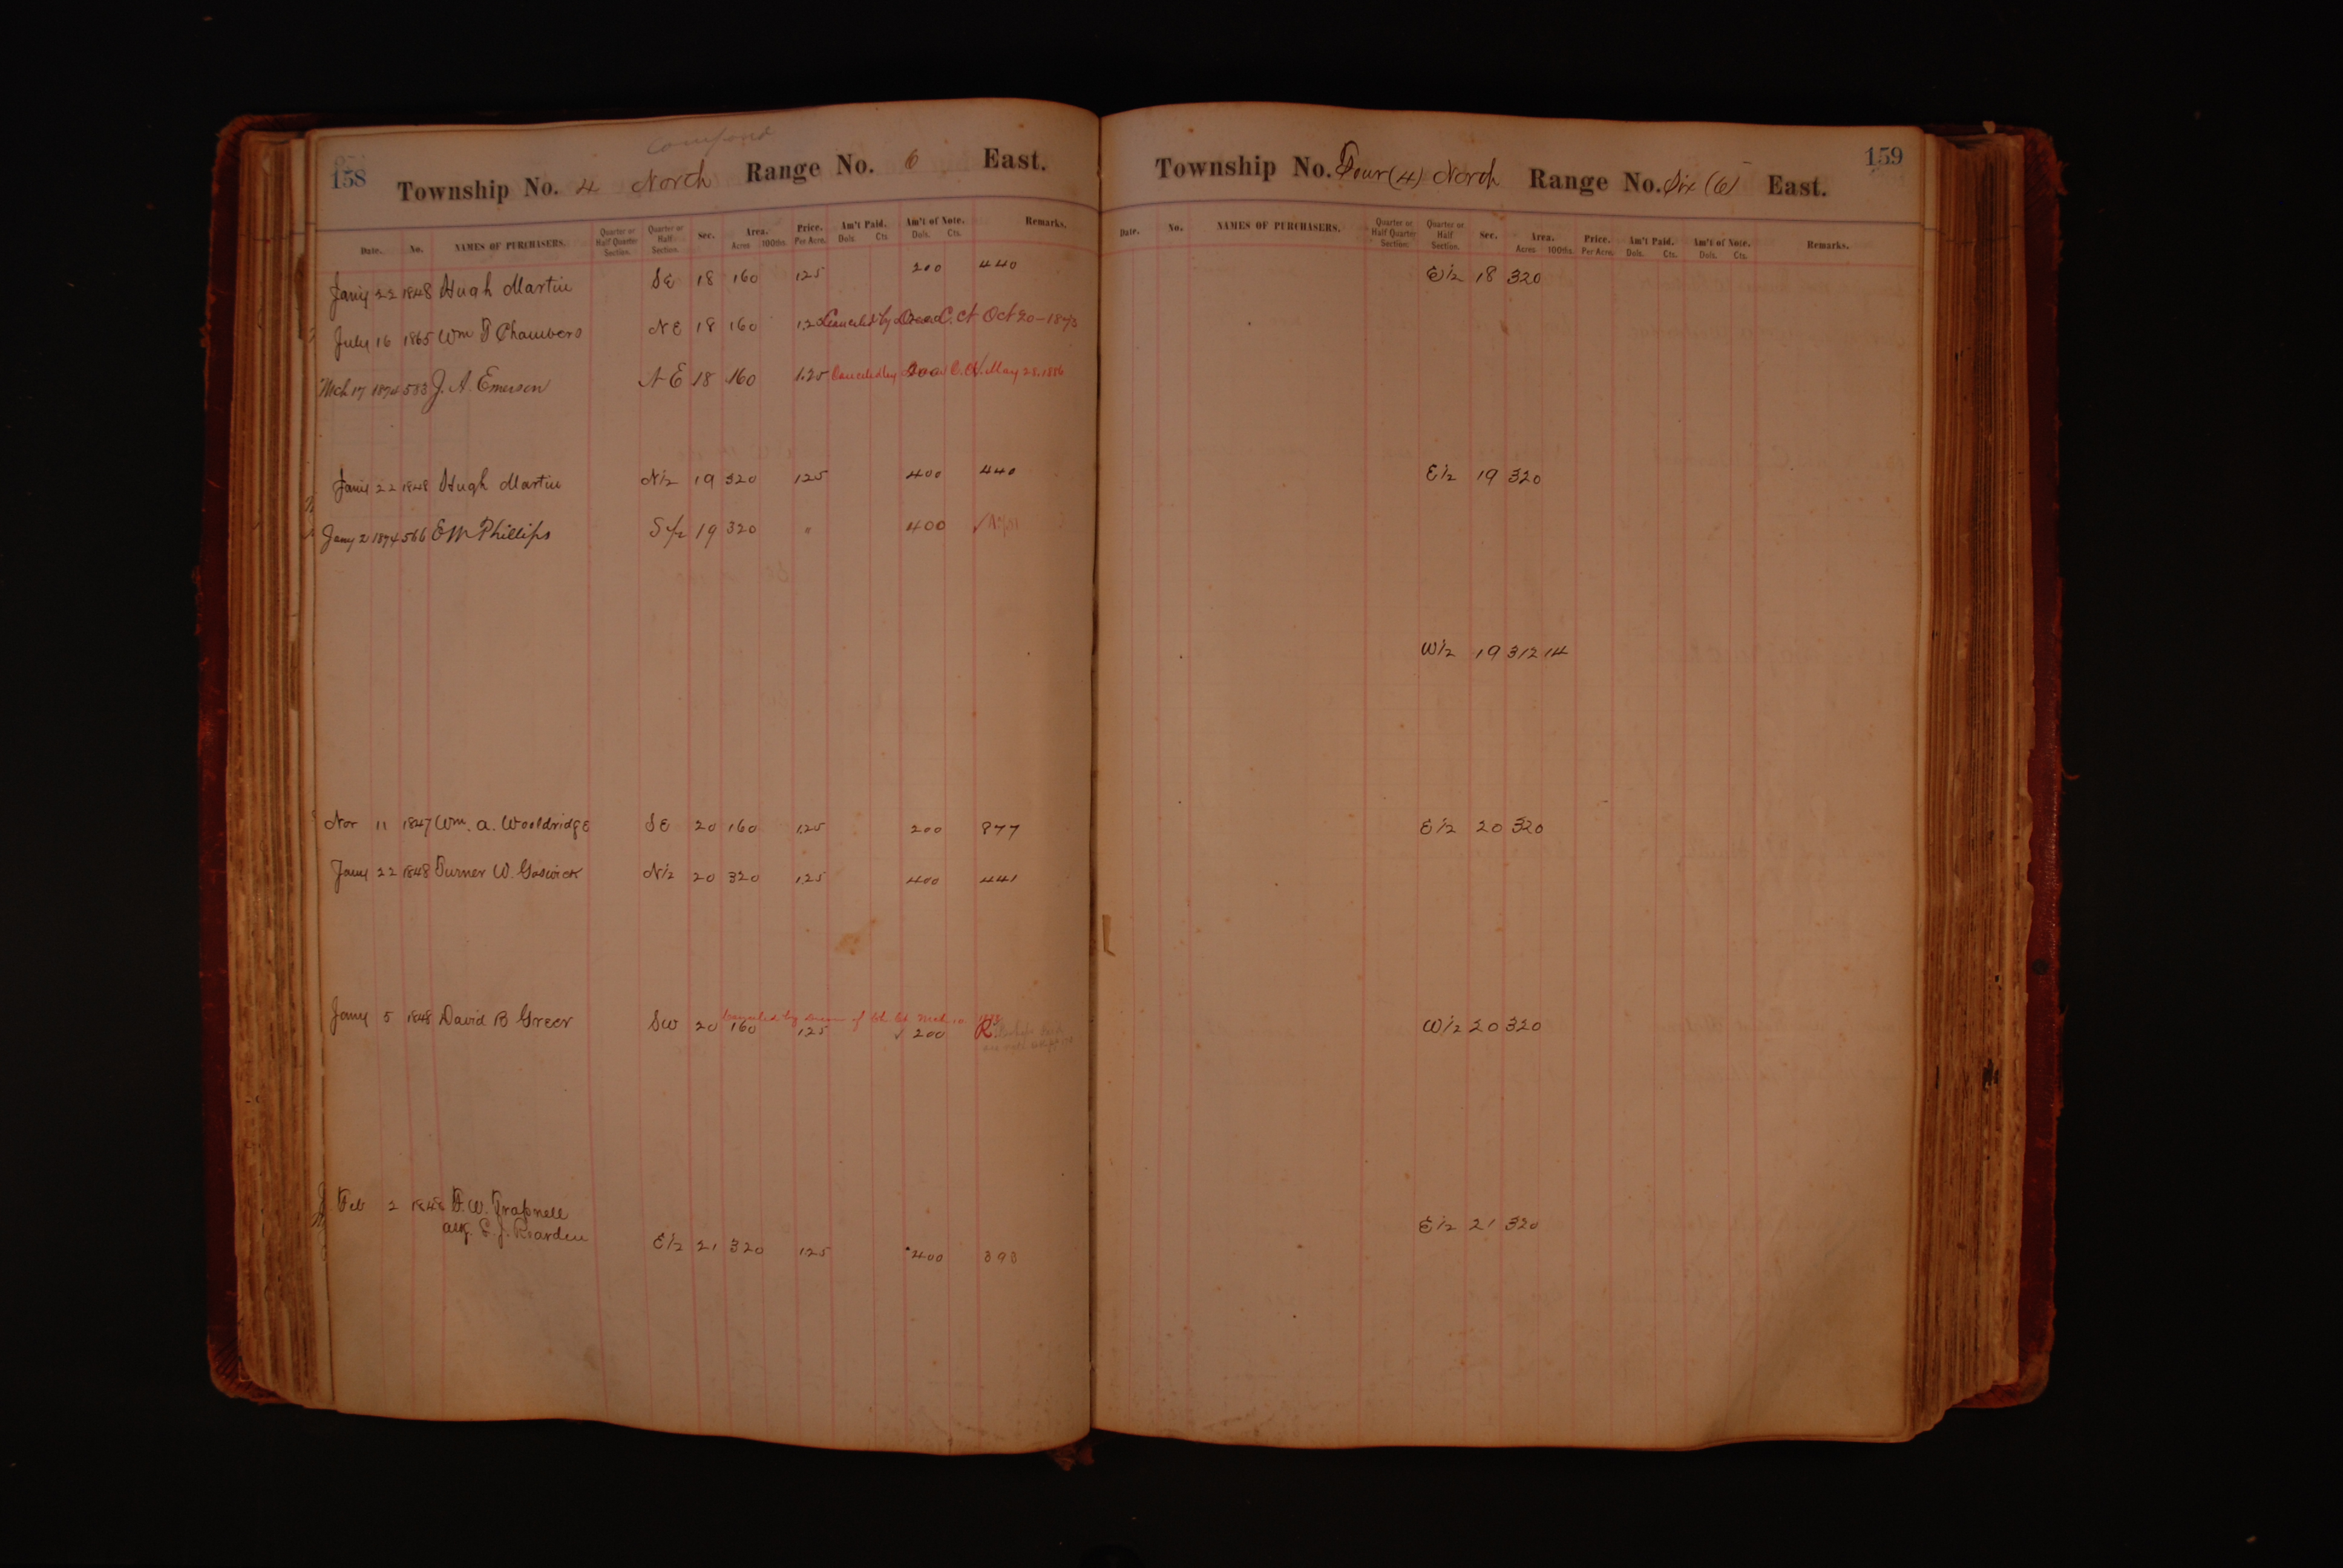 158
Compared
Township No. 4 North Range No. 6 East.
Date. No. NAMES OF PURCHASERS. Quarter or Half Quarter Section. Quarter or Half Section. Sec. Area. Acres 100ths. Price. Per Acre. Am't Paid. Dols. Cts. Am't of Note. Dols. Cts. Remarks.
Jany 22 1848 Hugh Martin SE 18 160 125 200 440
July 16 1865 Wm T Chambers NE 18 160 1.25 Canceled by C. Ct Oct 20-1873
Mch 17 1874 583 J. A. Emerson NE 18 160 1.25 Canceled by 200 C. Ct. May 28, 1886
Jany 22 1848 Hugh Martin N½ 19 320 125 400 440
Jany 2 1874 566 E M Phillips S½ 19 320 " 400
Nov 11 1847 Wm. A. Wooldridge SE 20 160 125 200 877
Jany 22 1848 Turner W. Goswick N½ 20 320 125 400 441
Jany 5 1848 David B Greer SW 20 160 125 200 R.
Canceled by Decree of Ch Ct
Feb 2 1848 F. W. Trapnell
E. J. Rearden
E½ 21 320 125 400 393
159
Township No. Four (4) North Range No. Six (6) East.
Date. No. NAMES OF PURCHASERS. Quarter or Half Quarter Section. Quarter or Half Section. Sec. Area. Acres 100ths. Price. Per Acre. Am't Paid. Dols. Cts. Am't of Note. Dols. Cts. Remarks.
E½ 18 320
E½ 19 320
W½ 19 312 14
E½ 20 320
W½ 20 320
E½ 21 320